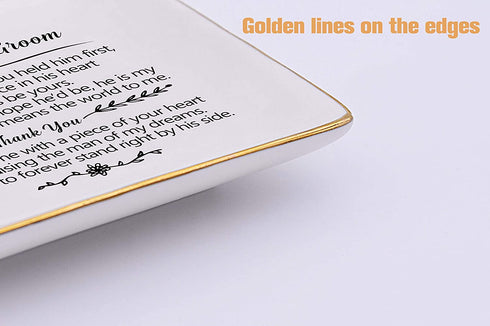 Golden lines on the edges
Groom
you held him first,
ce in his heart
s be yours.
hope he'd be, he is my
means the world to me.
Thank You
ne with a piece of your heart
ising the man of my dreams.
to forever stand right by his side.